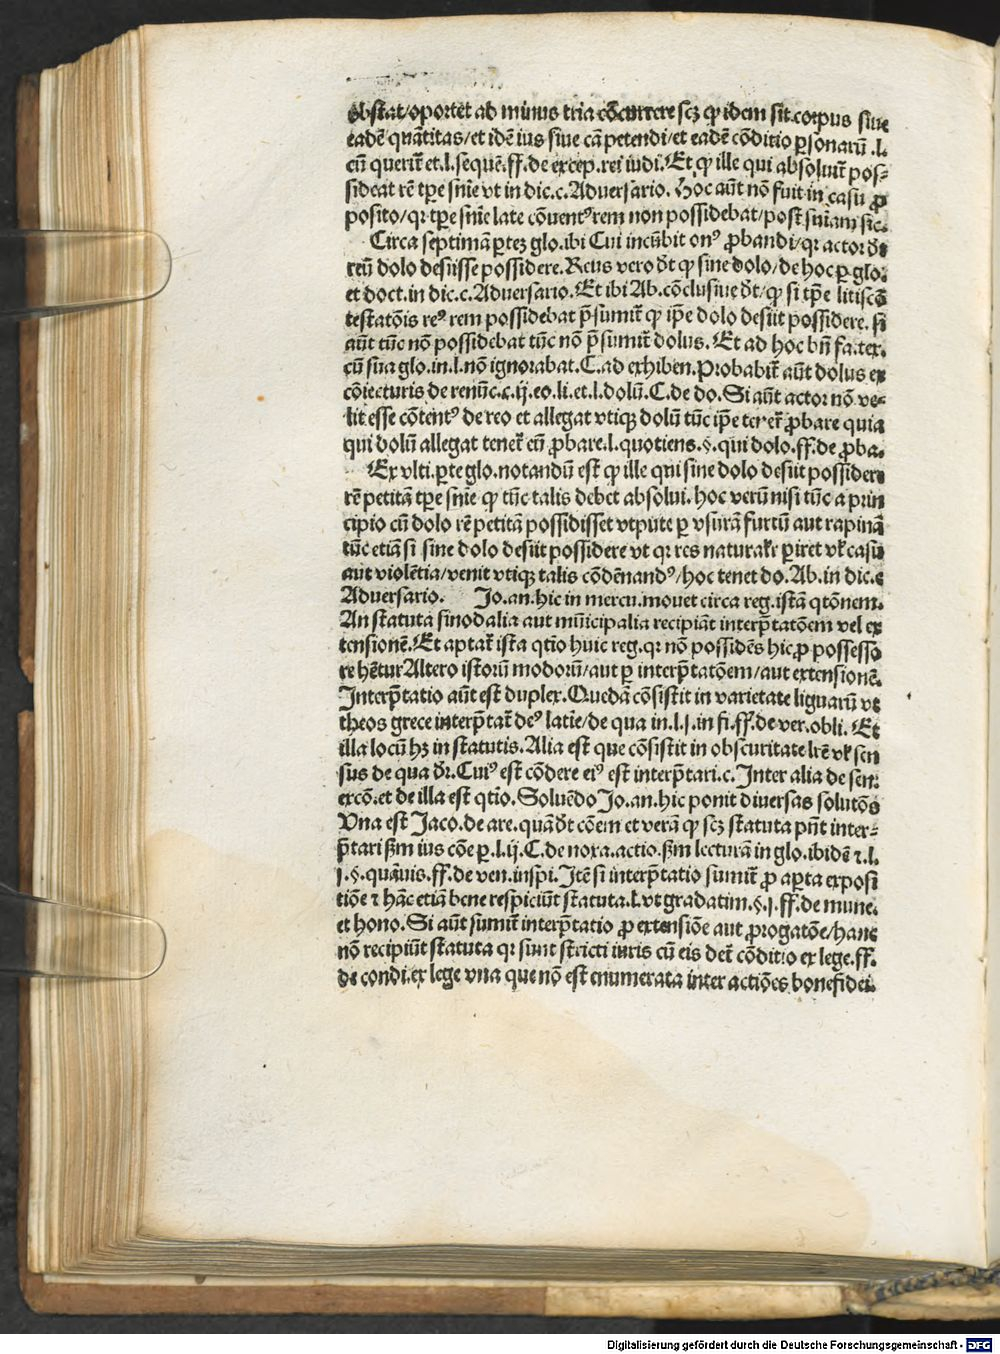 obstat/oportet ab minus tria cōcurrere scꝫ ꝙ idem sit corpus siue
eadē quātitas/et idē ius siue cā petendi/et eadē cōditio ꝑsonarū .l.
cū querit᷑ et .l. sequē. ff. de excep. rei iudi. Et ꝙ ille qui absoluit᷑ pos⸗
sideat rē tꝑe sn̄ie vt in dic. c. Aduersario. Hoc aūt nō fuit in casu ꝓ
posito/qꝛ tꝑe sn̄ie late cōuentꝰ rem non possidebat/post sn̄iam sic.
Circa septimā ꝑteꝫ glo. ibi Cui incūbit onꝰ ꝓbandi/qꝛ actor dt̄
reū dolo desiisse possidere. Reus vero dt̄ ꝙ sine dolo/de hoc ꝑ glo.
et doct. in dic. c. Aduersario. Et ibi Ab. cōclusiue dt̄/ꝙ si tꝑe litiscō
testatōis reꝰ rem possidebat p̄sumit᷑ ꝙ ip̄e dolo desiit possidere. si
aūt tūc nō possidebat tūc nō p̄sumit᷑ dolus. Et ad hoc bn̄ fa. tex.
cū sua glo. in .l. nō ignorabat. C. ad exhiben. Probabit᷑ aūt dolus ex
cōiecturis de renūc. c. ij. eo. li. et .l. dolū. C. de do. Si aūt actor nō ve⸗
lit esse cōtentꝰ de reo et allegat vtiqꝫ dolū tūc ip̄e tenet᷑ ꝓbare quia
qui dolū allegat tenet᷑ eū ꝓbare. l. quotiens. §. qui dolo. ff. de ꝓba.
Ex vlti. ꝑte glo. notandū est ꝙ ille qui sine dolo desiit possidere
rē petitā tꝑe sn̄ie ꝙ tūc talis debet absolui. hoc verū nisi tūc a prin
cipio cū dolo rē petitā possidisset vtpute ꝑ vsurā furtū aut rapinā
tūc etiā si sine dolo desiit possidere vt qꝛ res naturalr̄ ꝑiret vl̄ casu
aut violētia/venit vtiqꝫ talis cōdēnandꝰ/hoc tenet do. Ab. in dic. c
Aduersario. Jo. an. hic in mercu. mouet circa reg. istā qtōnem.
An statuta sinodalia aut mūicipalia recipiāt interp̄tatōem vel ex
tensionē. Et aptat᷑ ista qtio huic reg. qꝛ nō possidēs hic ꝓ possesso
re hētur Altero istorū modorū/aut ꝑ interp̄tatōem/aut extensionē.
Interp̄tatio aūt est duplex. Quedā cōsistit in varietate liguarū vt
theos grece interp̄tat᷑ deꝰ latie/de qua in .l. j. in fi. ff. de ver. obli. Et
illa locū hꝫ in statutis. Alia est que cōsistit in obscuritate lr̄e vl̄ sen
sus de qua dr̄. Cuiꝰ est cōdere eiꝰ est interp̄tari. c. Inter alia de sen.
excō. et de illa est qtio. Soluēdo Jo. an. hic ponit diuersas solutōs
Vna est Jaco. de are. quā dt̄ cōem et verā ꝙ scꝫ statuta pn̄t inter⸗
p̄tari ẜm ius cōe ꝑ .l. ij. C. de noxa. actio. ẜm lecturā in glo. ibidē ⁊ .l.
j. §. quāuis. ff. de ven. inspi. Itē si interp̄tatio sumit᷑ ꝓ aꝑta exposi
tiōe ⁊ hāc etiā bene respiciūt statuta. l. vt gradatim. §. j. ff. de mune.
et hono. Si aūt sumit᷑ interp̄tatio ꝓ extensiōe aut ꝓrogatōe/hanc
nō recipiūt statuta qꝛ sunt stricti iuris cū eis det᷑ cōditio ex lege. ff.
de condi. ex lege vna que nō est enumerata inter actiōes bonefidei.
Digitalisierung gefördert durch die Deutsche Forschungsgemeinschaft - DFG